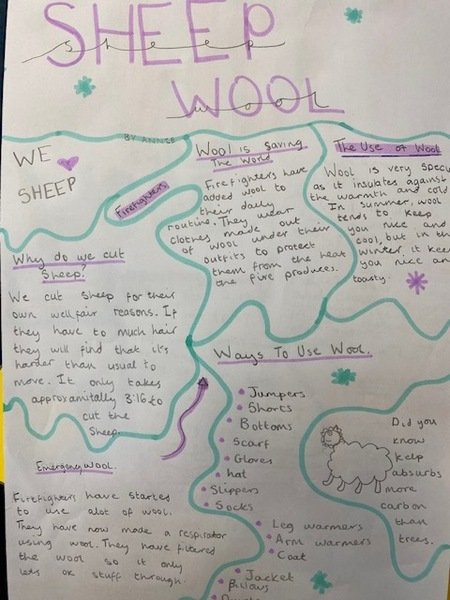 SHEEP
sheep
WOOL
wool
BY ANNIE
WE
SHEEP
Firefighters
Wool is saving
The World
Firefighters have
added wool to
their daily
routine. They wear
clothes made out
of wool under their
outfits to protect
them from the heat
the fire produces.
The Use of Wool
Wool is very
as it insulates against
the warmth and cold
In summer, wool
tends to keep
you nice and
cool, but in the
winter it
you nice
toasty.
Why do we cut
Sheep?
We cut sheep for their
own wellfair reasons. If
they have to much hair
they will find that it's
harder than usual to
move. It only takes
approximitally 3:16 to
cut the
Sheep.
Ways To Use Wool.
Jumpers
Shorts
Bottoms
Scarf
Gloves
hat
Slippers
Socks
Leg warmers
Arm warmers
Coat
Jacket
Pillows
Did you
know
kelp
absurbs
more
carbon
than
trees.
Emergency wool.
Firefighters have started
to use alot of wool.
They have now made a respirator
using wool. They have filtered
the wool so it only
lets ok stuff through.